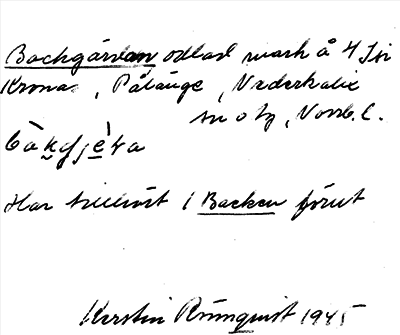 Backgärdan odlad mark å 4 Isr
Krona, Pålänge, Nederkalix
sn o tg, Norrb. l.
Har tillhört 1 Backen förut
Kerstin Rönnquist 1945